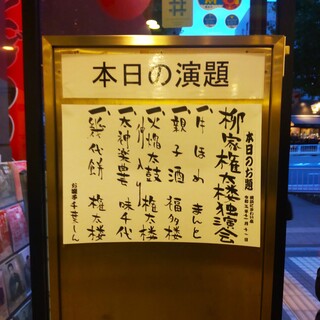 本日の演題
本日のお題
柳家権太楼独演会
一、牛ほめ まんと
一、親子酒 福多楼
一、火焔太鼓 権太楼
仲入り
一、太神楽曲芸 味千代
一、幾代餅 権太楼
お囃子 千葉しん